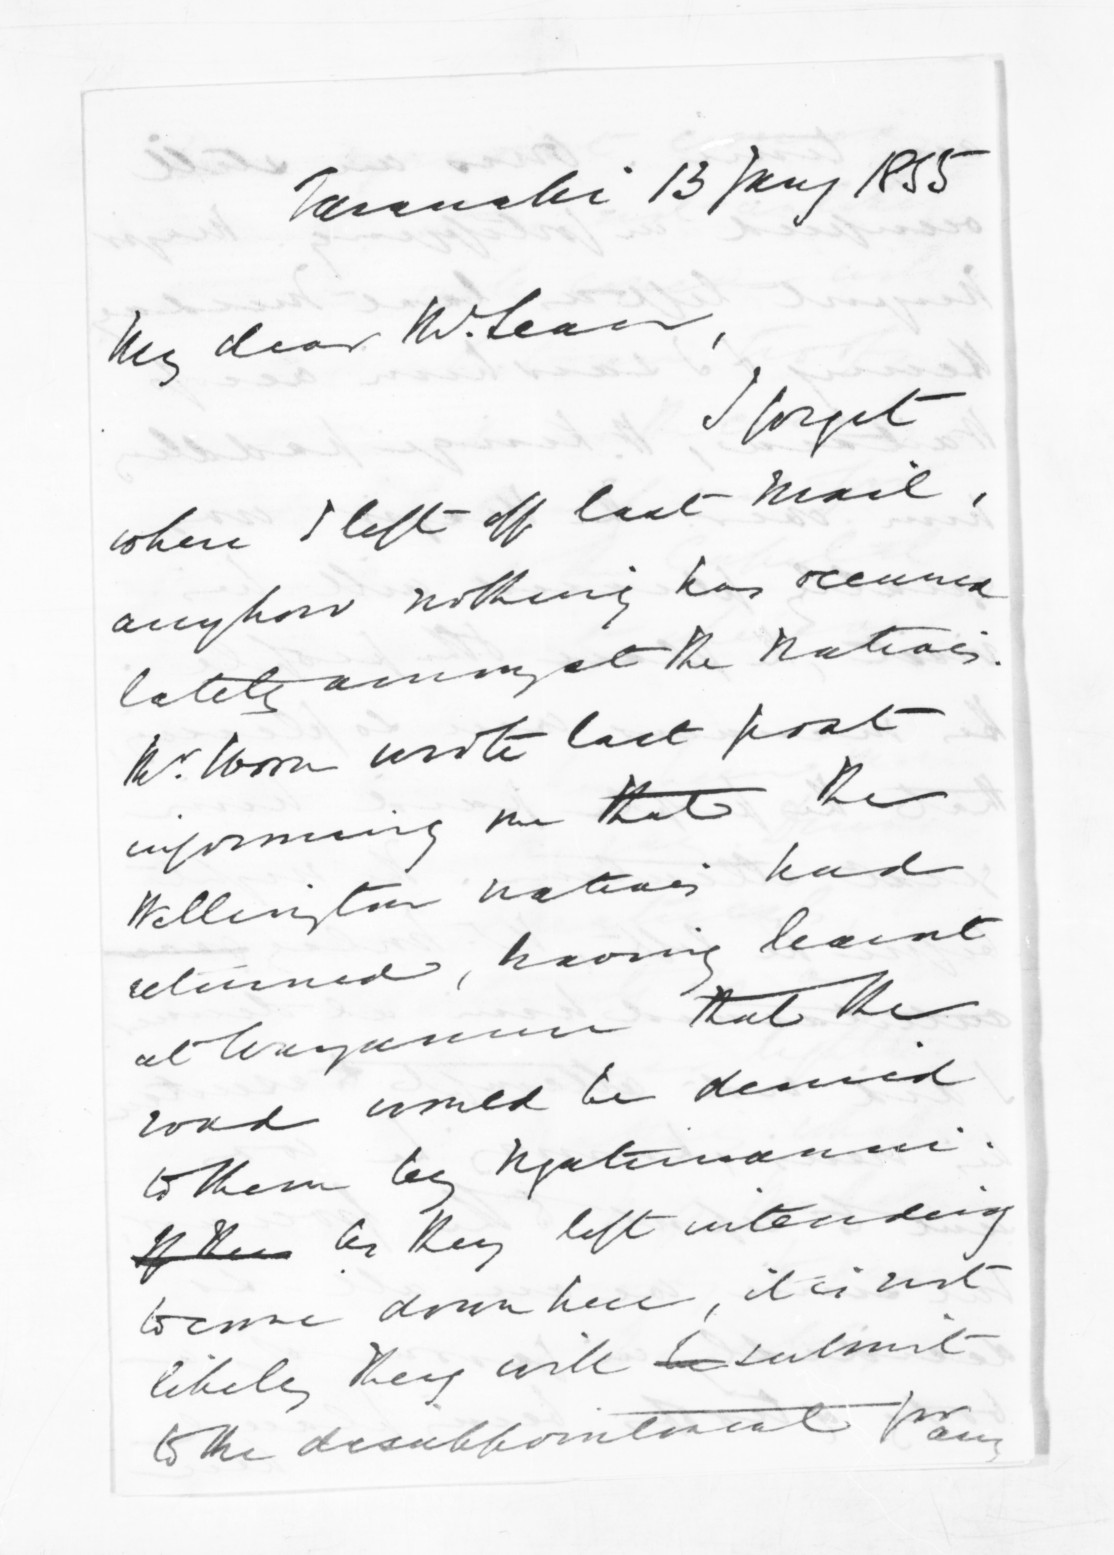 Taranaki 13 Jany 1855
My dear McLean,
I forget
where I left off last Mail,
anyhow nothing has occurred
lately amongst the Natives.
Mr. Woon wrote last post
informing me that the
Wellington natives had
returned, having learnt
at Wanganui that the
road would be denied
to them by Ngatiruanui.
If they As they left intending
to come down here, it is not
likely they will submit
to the disappointment for any